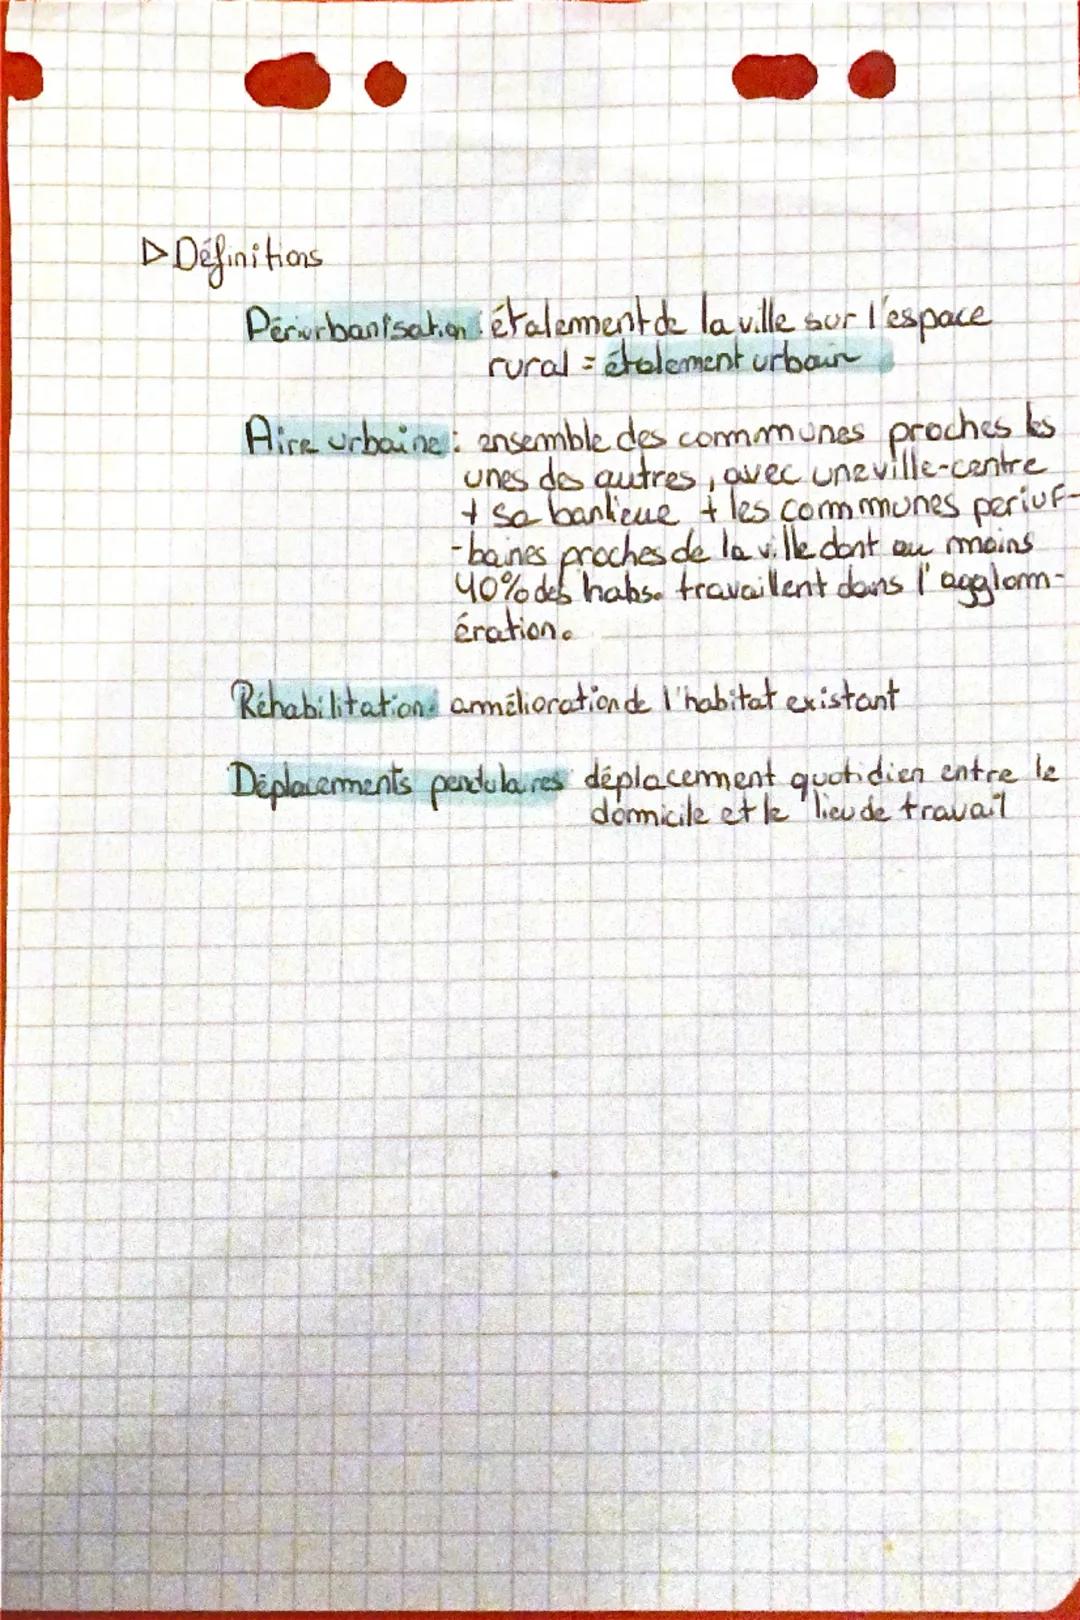 ▷ Définitions
Périurbanisation : étalement de la ville sur l'espace
rural = étalement urbain
Aire urbaine : ensemble des communes proches les
unes des autres, avec une ville-centre
+ sa banlieue + les communes periur-
-baines proches de la ville dont au moins
40% des habs. travaillent dans l'agglom-
ération.
Réhabilitation : ammélioration de l'habitat existant
Déplacements pendulaires : déplacement quotidien entre le
domicile et le lieu de travail